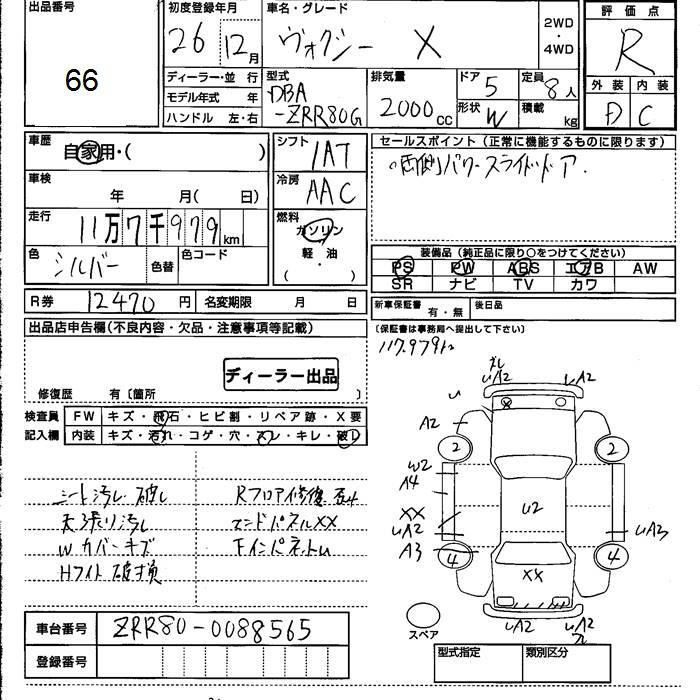 出品番号
66
初度登録年月
26 12月
車名・グレード
ヴォクシー X
2WD
・
4WD
評価点
R
外装 内装
D C
ディーラー・並行
モデル年式 年
ハンドル 左・右
型式
DBA
-ZRR80G
排気量
2000cc
ドア
5
形状
W
定員
8人
積載
kg
車歴
自家用・( )
車検
年 月( 日)
走行
11万7千979km
色
シルバー
色替
色コード
シフト
IAT
冷房
AAC
燃料
ガソリン
軽・油
( ・ )
セールスポイント(正常に機能するものに限ります)
・両側パワースライドドア.
装備品(純正品に限り○をつけてください)
PS PW ABS エアB AW
SR ナビ TV カワ
R券 12470円 名変期限 月 日
新車保証書 有・無 後日品
(保証書は事務局へ提出して下さい)
117.979km
出品店申告欄(不良内容・欠品・注意事項等記載)
ディーラー出品
修復歴 有〔箇所 〕
検査員 FW キズ・飛石・ヒビ割・リペア跡・X要
記入欄 内装 キズ・汚れ・コゲ・穴・スレ・キレ・破レ
シート汚レ 破レ
天張り汚レ
Wカバーキズ
Hライト破損
Rフロア修復
エンドパネルXX
車台番号 ZRR80-0088565
登録番号
ズレ
uA2
uA2
A2
2
2
W2
A4
XX
uA2
A3
U2
uA3
4
4
XX
uA2
uA2
スペア
型式指定 類別区分